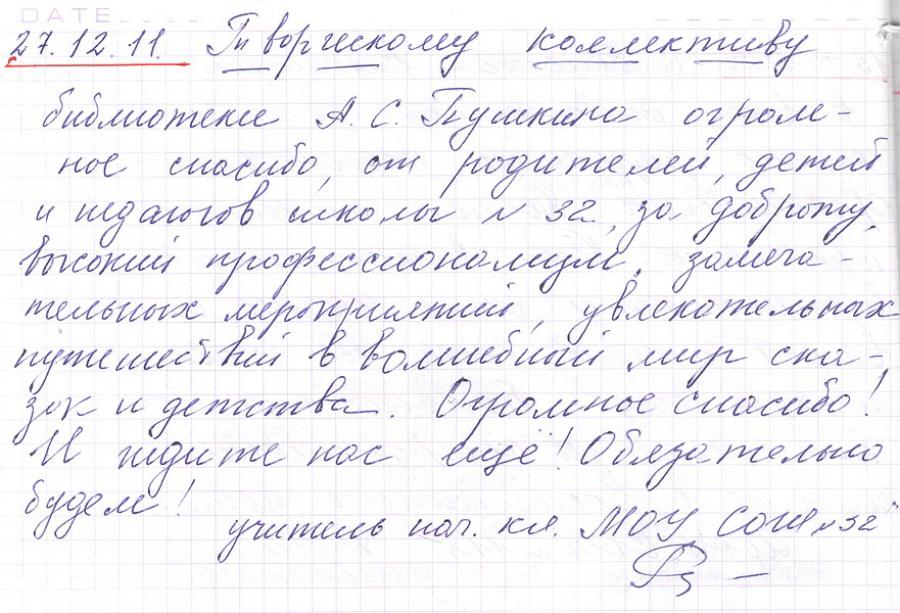 DATE
27.12.11. Творческому коллективу
библиотеке А.С. Пушкина огром-
ное спасибо, от родителей, детей
и педагогов школы № 32, за доброту,
высокий профессионализм, замеча-
тельных мероприятий, увлекательных
путешествий в волшебный мир ска-
зок и детства. Огромное спасибо!
И ждите нас ещё! Обязательно
будем!
учитель нач. кл. МОУ СОШ №32